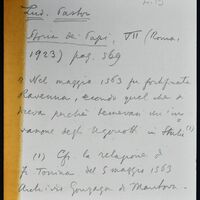 Lud. Pastor
Storia dei Papi, VII (Roma,
1923) pag. 569
Nel maggio 1563 fu fortificata
Ravenna, secondo quel che
perché temevano un'in
vasione degli Ugonotti in Italia (1)
(1) Cfr. la relazione di
F. Tonina del 5 maggio 1563
Archivio Gonzaga di Mantova.